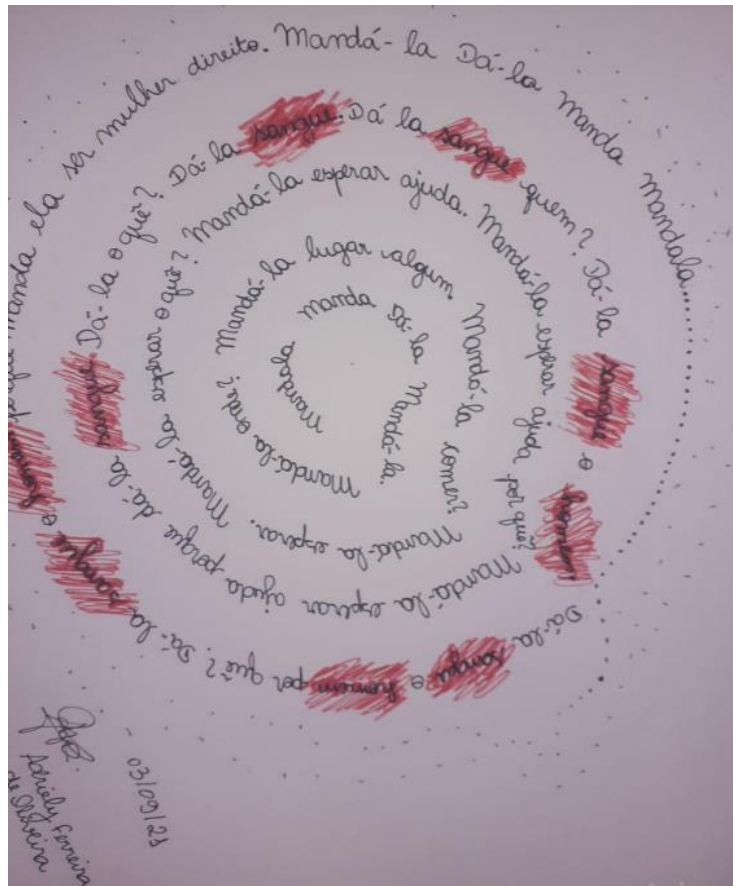 Mandala manda Dá-la Mandá-la.
Mandá-la onde? Mandá-la lugar algum. Mandá-la comer? Mandá-la esperar.
Mandá-la esperar o quê? Mandá-la esperar ajuda. Mandá-la esperar ajuda por quê? Mandá-la esperar ajuda porque dá-la
sangue. Dá-la o quê? Dá-la sangue. Dá la sangue quem? Dá-la sangue o homem.
Dá-la sangue o homem por quê? Dá-la sangue o homem porque manda ela ser mulher direito. Mandá-la Dá-la manda mandala......
03/09/21
Adriely Ferreira
de Oliveira